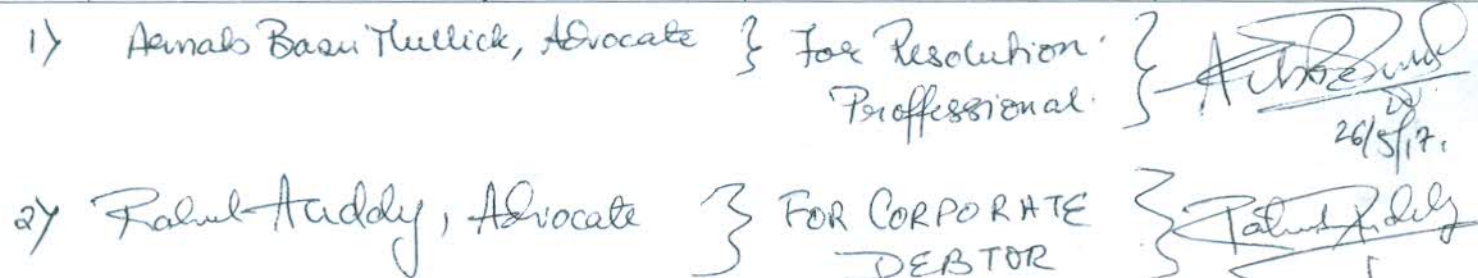 1) Basu Mullick, Advocate } For Resolution }
Proffessional.
26/5/17.
2) Rahul Auddy, Advocate } FOR CORPORATE }
DEBTOR